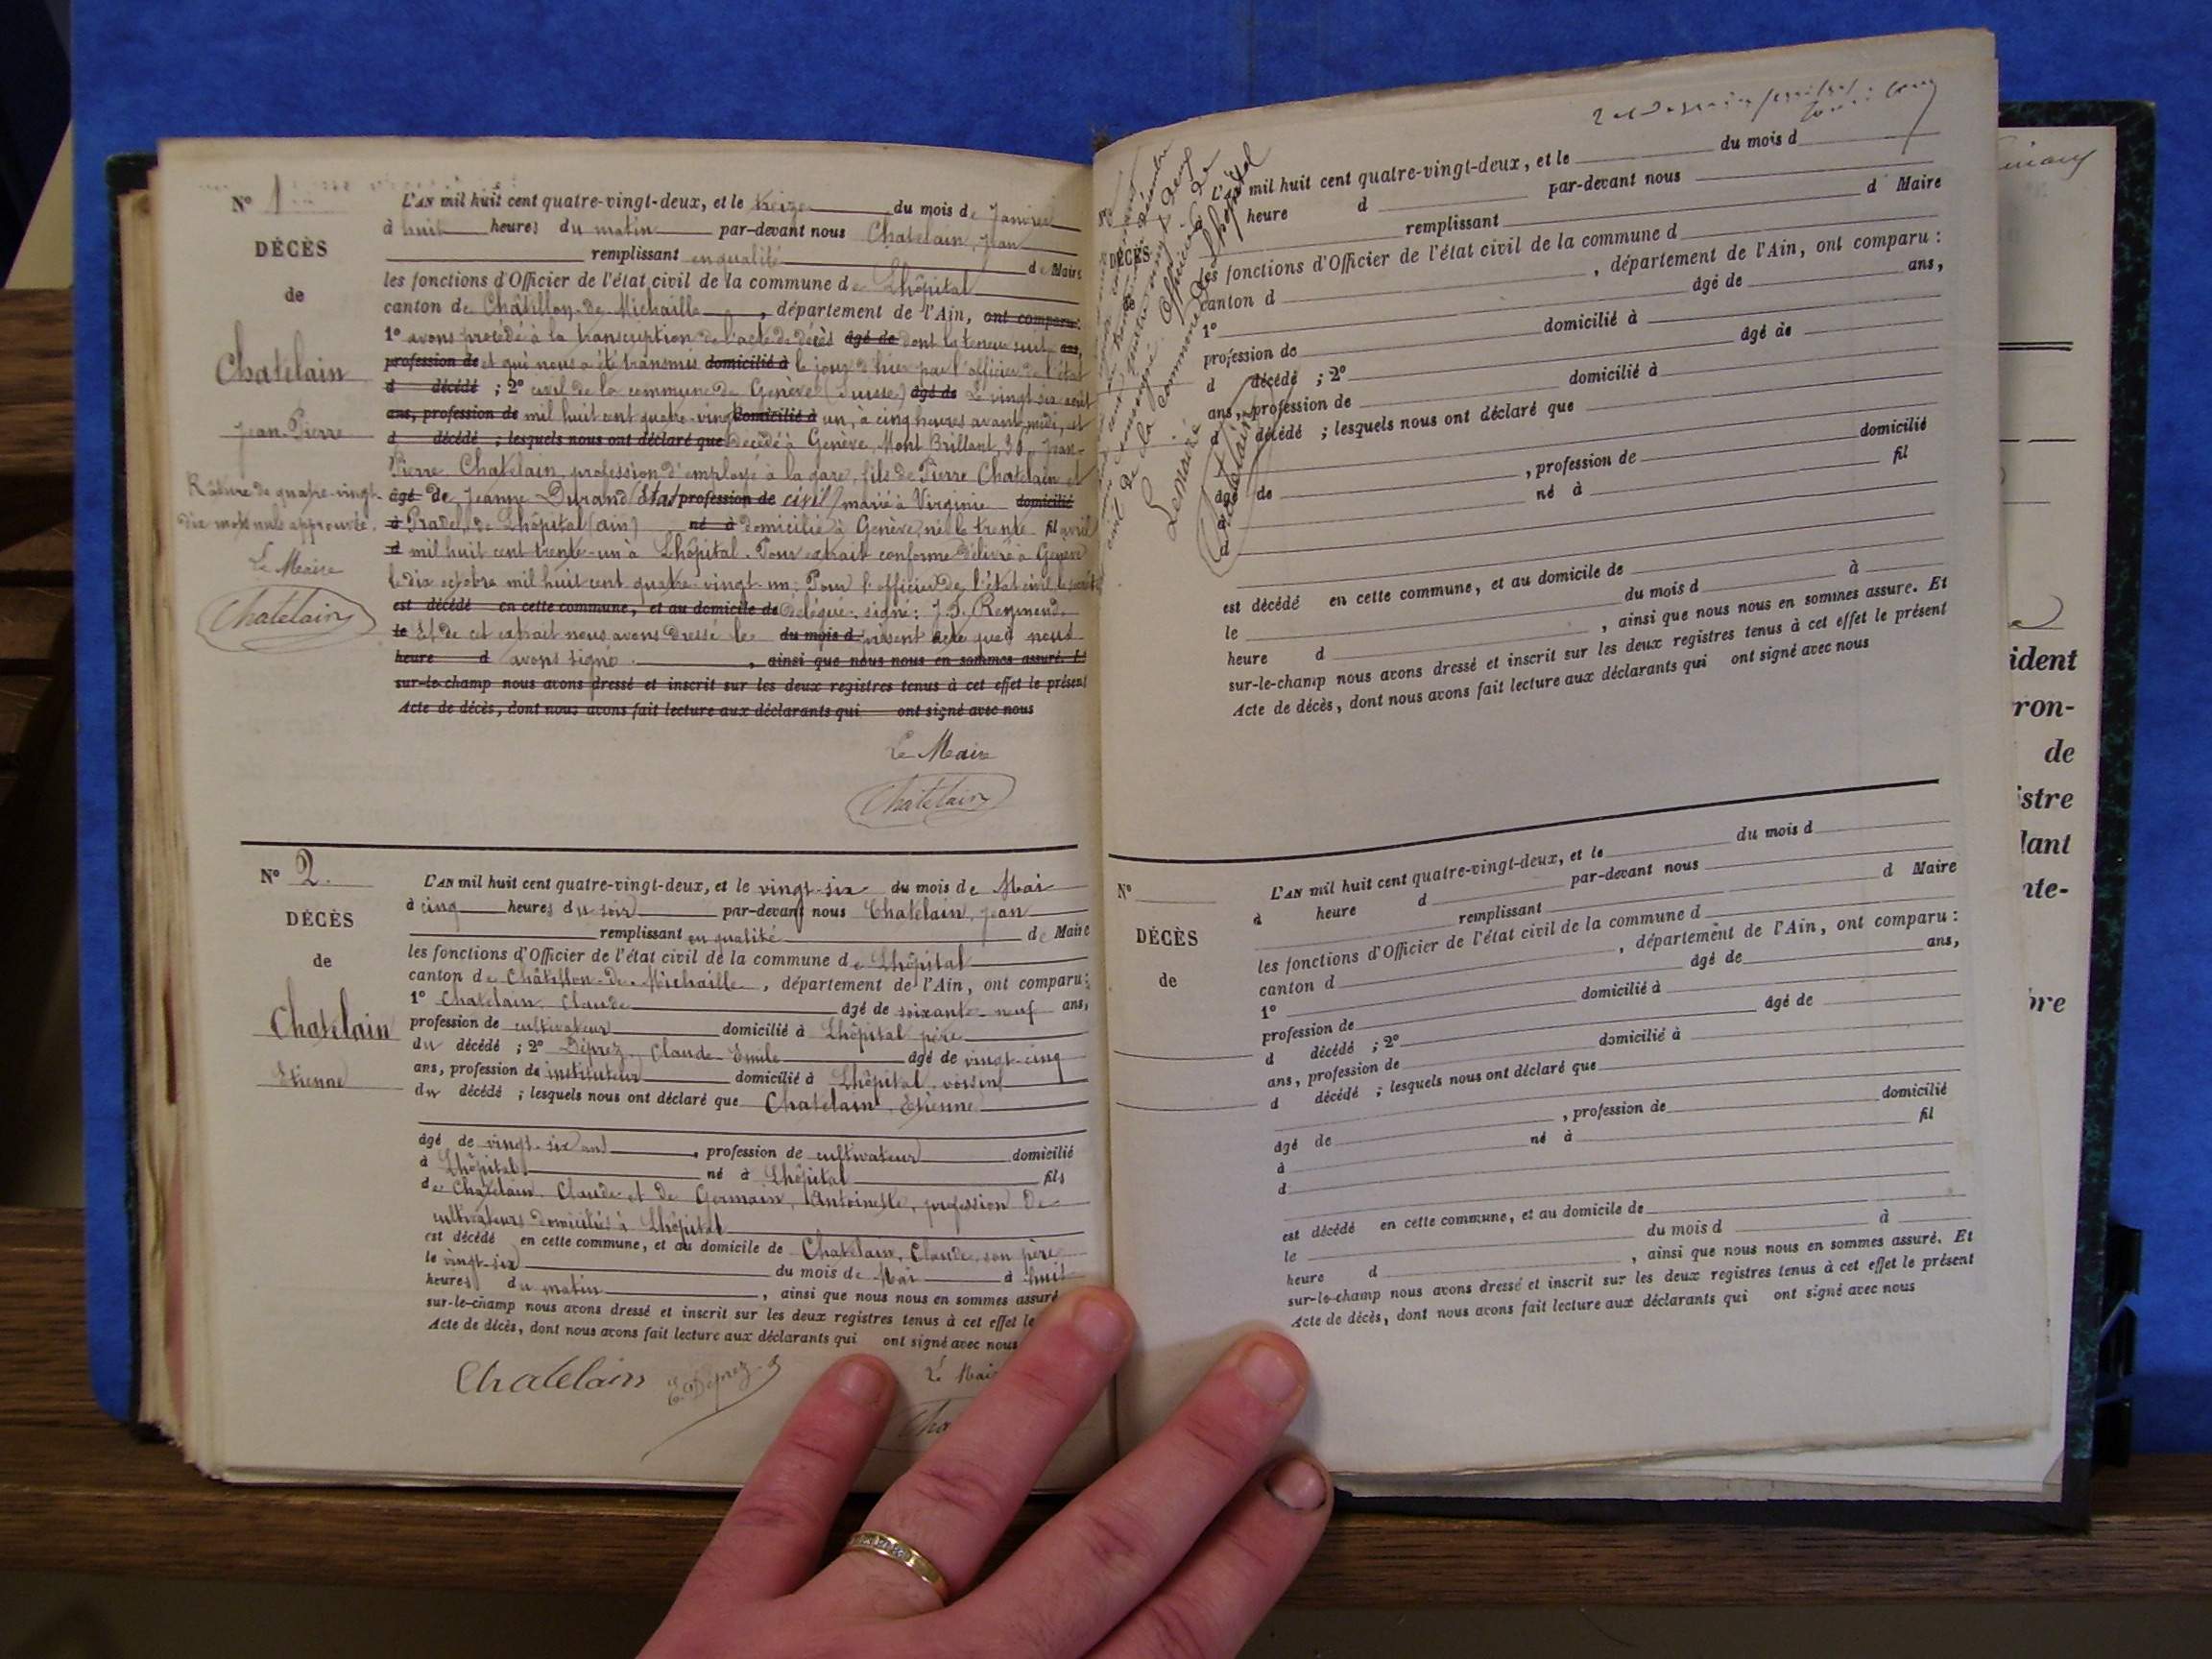 N° 1
DÉCÈS
de
Chatelain
Jean-Pierre
Râture de quatre-vingt-
dix mots nuls approuvée.
Le Maire
Chatelain
L'AN mil huit cent quatre-vingt-deux, et le treize du mois de Janvier
à huit heures du matin par-devant nous Chatelain, Jean
remplissant en qualité de Maire
les fonctions d'Officier de l'état civil de la commune de Lhôpital
canton de Châtillon-de-Michaille, département de l'Ain, ont comparu:
1° avons procédé à la transcription de l'acte de décès âgé de dont la teneur suit ans,
profession de et qui nous a été transmis domicilié à le jour d'hier par l'officier de l'état
d décédé ; 2° civil de la commune de Genève (Suisse) âgé de Le vingt-six août
ans, profession de mil huit cent quatre-vingt domicilié à un, à cinq heures avant midi, est
d décédé ; lesquels nous ont déclaré que décédé à Genève, Mont Brillant, 30, Jean-
Pierre Chatelain, profession d'employé à la gare, fils de Pierre Chatelain et
âgé de de Jeanne Durand (état profession de civil) marié à Virginie domicilié
à Pradel, de Lhôpital (ain) né à domicilié à Genève, né le trente fil avril
d mil huit cent trente-un à Lhôpital. Pour extrait conforme délivré à Genève
le dix octobre mil huit cent quatre-vingt-un: Pour l'officier de l'état civil, le
est décédé en cette commune, et au domicile de délégué: signé: J. Reymond.
le Et de cet extrait nous avons dressé le du mois d présent acte que nous
heure d avons signé. , ainsi que nous nous en sommes assuré. Et
sur-le-champ nous avons dressé et inscrit sur les deux registres tenus à cet effet le présent
Acte de décès, dont nous avons fait lecture aux déclarants qui ont signé avec nous
Le Maire
Chatelain
N° 2.
DÉCÈS
de
Chatelain
Etienne
L'AN mil huit cent quatre-vingt-deux, et le vingt-six du mois de Mai
à cinq heures du soir par-devant nous Chatelain, Jean
remplissant en qualité de Maire
les fonctions d'Officier de l'état civil de la commune de Lhôpital
canton de Châtillon-de-Michaille, département de l'Ain, ont comparu:
1° Chatelain, Claude âgé de soixante-neuf ans,
profession de cultivateur domicilié à Lhôpital père
du décédé ; 2° Déprez, Claude Emile âgé de vingt-cinq
ans, profession de instituteur domicilié à Lhôpital, voisin
du décédé ; lesquels nous ont déclaré que Chatelain, Etienne
âgé de vingt-six ans, profession de cultivateur domicilié
à Lhôpital né à Lhôpital fils
de Chatelain, Claude et de Germain, Antoinette, profession de
cultivateurs domiciliés à Lhôpital
est décédé en cette commune, et au domicile de Chatelain, Claude, son père
le vingt-six du mois de Mai à huit
heures du matin, ainsi que nous nous en sommes assuré
sur-le-champ nous avons dressé et inscrit sur les deux registres tenus à cet effet le
Acte de décès, dont nous avons fait lecture aux déclarants qui ont signé avec nous
Chatelain E. Déprez
Le Mai
Cha
DÉCÈS
de
vingt-neuf
Décembre
Officier de
civil de la commune de Lhôpital
Le Maire
Chatelain
L'AN mil huit cent quatre-vingt-deux, et le du mois d
heure d par-devant nous
remplissant d Maire
les fonctions d'Officier de l'état civil de la commune d
canton d , département de l'Ain, ont comparu :
1° âgé de ans,
profession de domicilié à
d décédé ; 2° âgé de
ans, profession de domicilié à
d décédé ; lesquels nous ont déclaré que
âgé de , profession de domicilié
à né à fil
d
est décédé en cette commune, et au domicile de
le du mois d à
heure d , ainsi que nous nous en sommes assure. Et
sur-le-champ nous avons dressé et inscrit sur les deux registres tenus à cet effet le présent
Acte de décès, dont nous avons fait lecture aux déclarants qui ont signé avec nous
N°
DÉCÈS
de
L'AN mil huit cent quatre-vingt-deux, et le du mois d
à heure d par-devant nous
remplissant d Maire
les fonctions d'Officier de l'état civil de la commune d
canton d , département de l'Ain, ont comparu :
1° âgé de ans,
profession de domicilié à
d décédé ; 2° âgé de
ans, profession de domicilié à
d décédé ; lesquels nous ont déclaré que
âgé de , profession de domicilié
à né à fil
d
est décédé en cette commune, et au domicile de
le du mois d à
heure d , ainsi que nous nous en sommes assuré. Et
sur-le-champ nous avons dressé et inscrit sur les deux registres tenus à cet effet le présent
Acte de décès, dont nous avons fait lecture aux déclarants qui ont signé avec nous
ident
ron-
de
istre
lant
nte-
ire